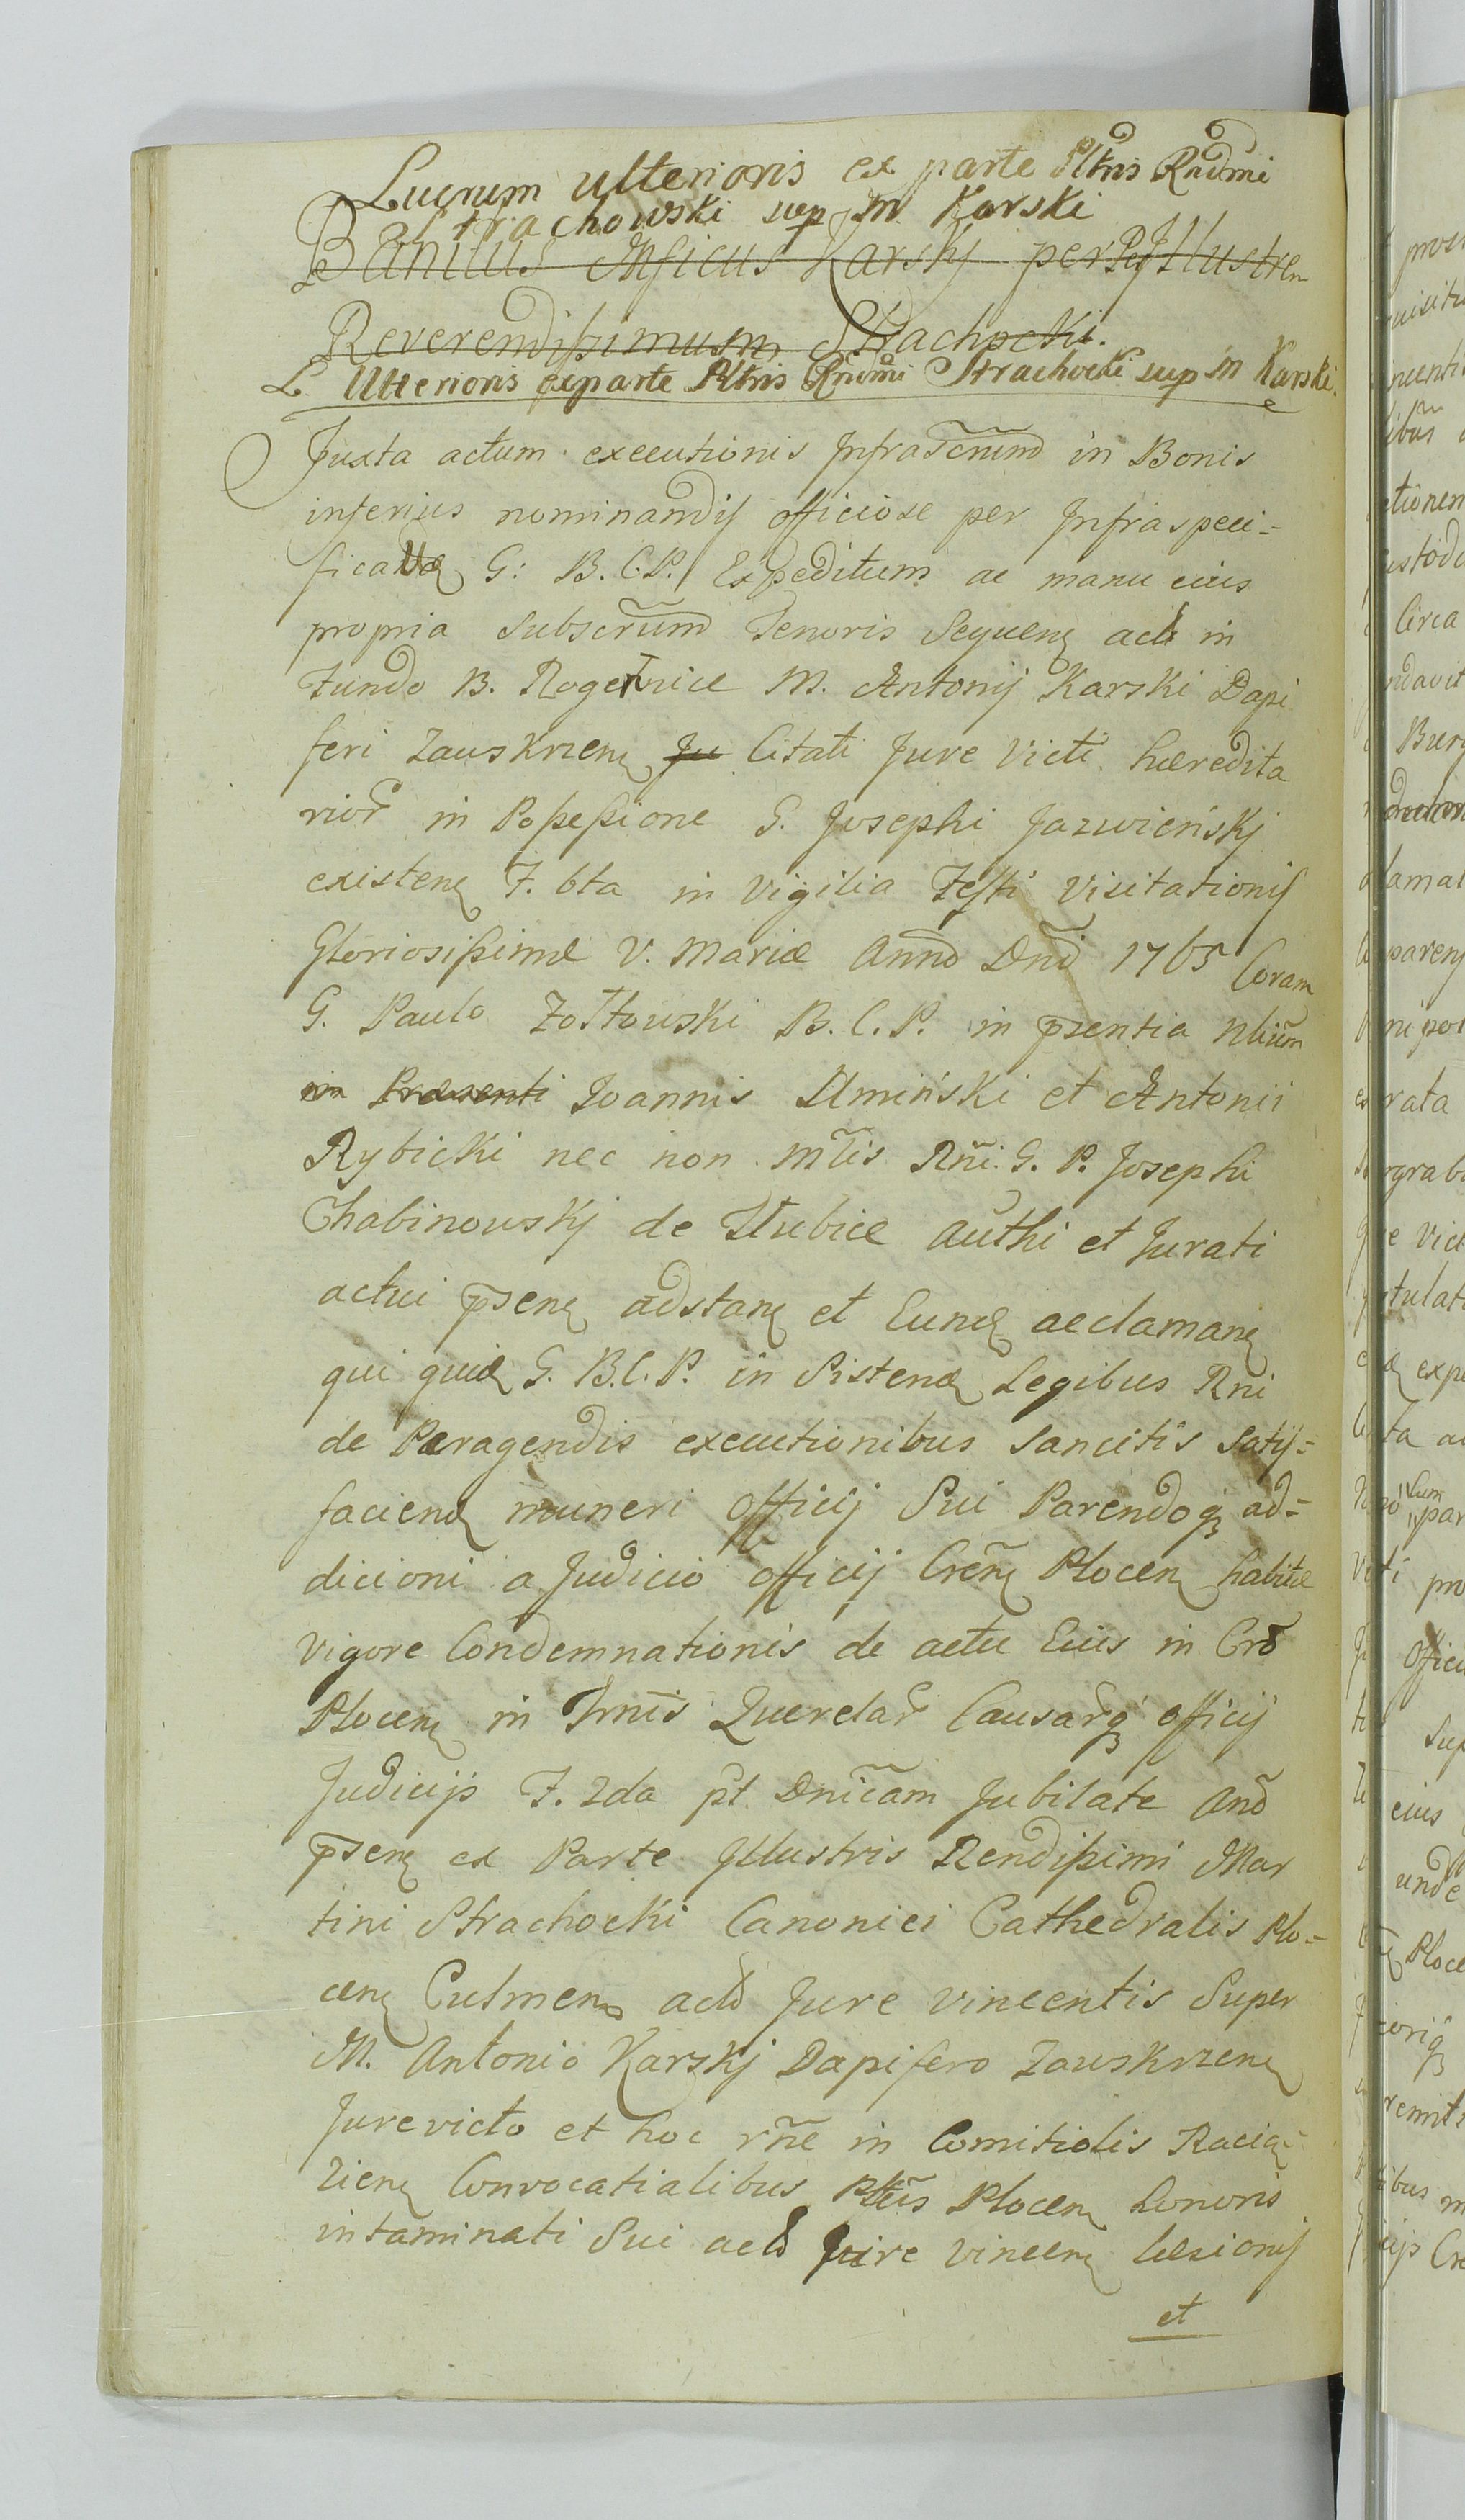 Lucrum ulterioris ex parte Pltris Rndmi
Strachowski sup M Karski
Banitus Mficus Karskj per Perillustrem
Reverendissimum Strachocki.
L Ulterioris exparte Plltris Rndmi Strachocki sup M Karski.
Juxta actum executionis Infrascrium in Bonis
inferius nominandis officiose per Infraspeci=
ficatum G: B. C. P. Expeditum ac manu eius
propria Subscrium Tenoris Sequen act in
Fundo B. Rogetnice M. Antonij Karski Dapi
feri Zauskrzen Ju Citati Jure Victi hæredita
rior in Possessione G. Josephi Jazwieńskj
existen F. 6ta in vigilia Festi Visitationis
Gloriosissimæ V. Mariæ Anno Dni 1765 Coram
G. Paulo Żołtowski B. C. P. in psentia Nlium
in Præsenti Joannis Umiński et Antonii
Rybicki nec non Mtis Rni. G. P. Josephi
Chabinowskj de Słubice Authi et Jurati
actui psen adstan et Eund acclaman
qui quid G. B. C. P. in Sistend Legibus Rni
de Peragendis executionibus Sancitis Satis=
faciend muneri Officij Sui Parendoq ad=
dicioni a Judicio officij Cren Plocen habitæ
vigore Condemnationis de actu Eius in Cro
Plocen in Trnis Querelar Causarq officij
Judicijs F. 2da pt Dnicam Jubilate Ano
psen ex Parte Jllustris Rendissimi Mar
tini Strachocki Canonici Cathedralis Plo=
cen Culmen acto Jure vincentis Super
M. Antonio Karskj Dapifero Zauskrzen
Jurevicto et hoc rne in Comitiolis Racią
zien Convocatialibus Pltus Plocen honoris
intaminati Sui acto Jure Vincen læsionis
et